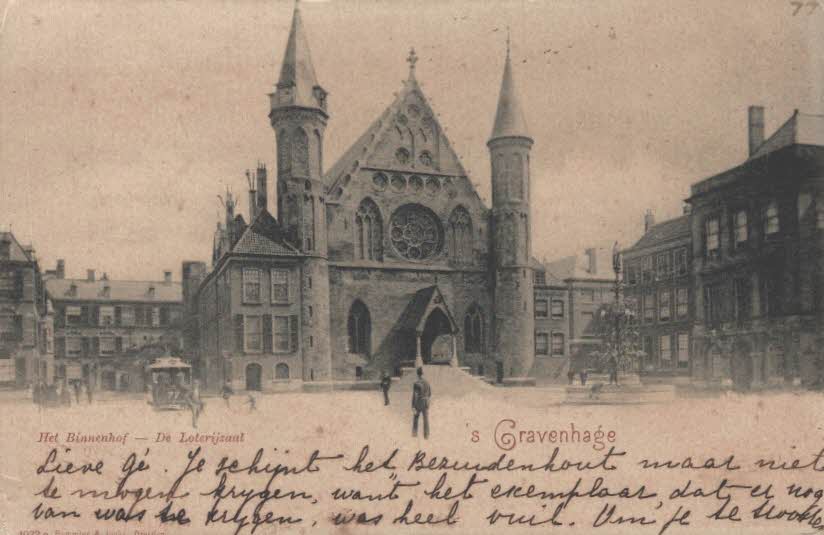 77
Het Binnenhof — De Loterijzaal
's Gravenhage
Lieve Gé. Je schijnt het Bezuidenhout maar niet
te mogen krygen, want het exemplaar, dat er nog
van was te krygen, was heel vuil. Om je te troosten